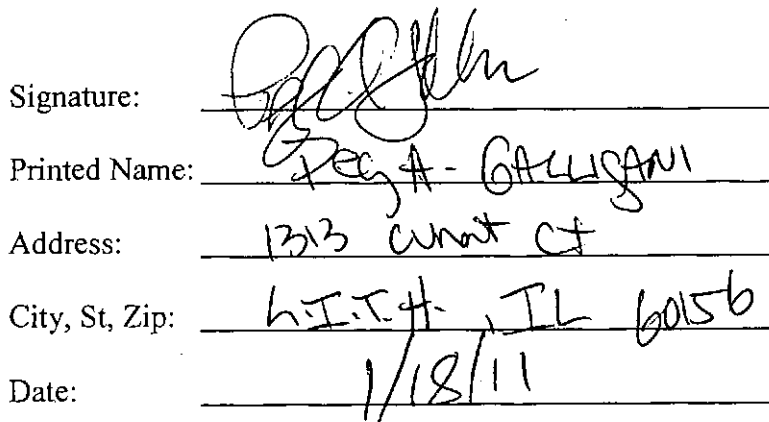 Signature:
Printed Name: Peg A. GALLIGANI
Address: 1313 Ct
City, St, Zip: L.I.T.H., IL 60156
Date: 1/18/11